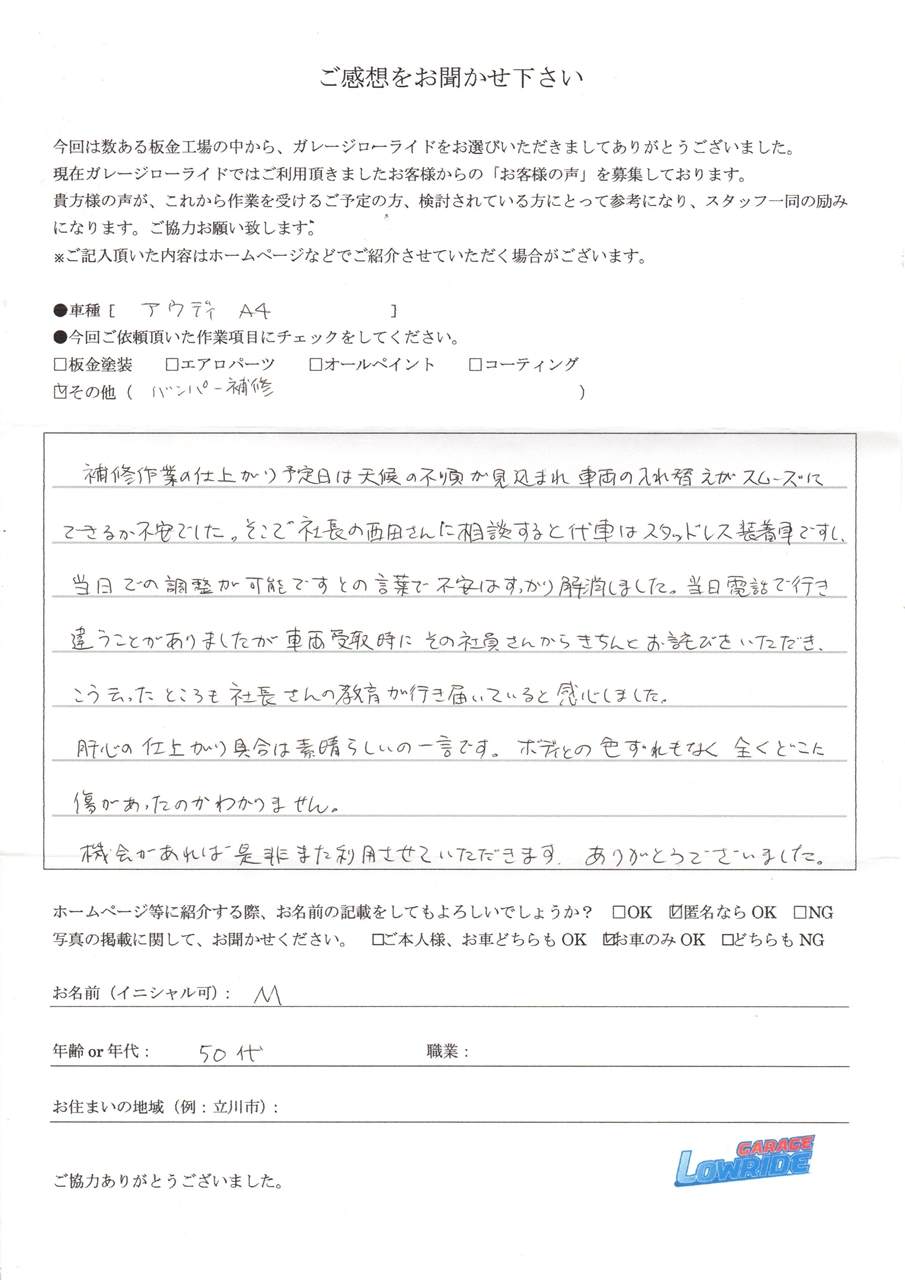 ご感想をお聞かせ下さい
今回は数ある板金工場の中から、ガレージローライドをお選びいただきましてありがとうございました。
現在ガレージローライドではご利用頂きましたお客様からの「お客様の声」を募集しております。
貴方様の声が、これから作業を受けるご予定の方、検討されている方にとって参考になり、スタッフ一同の励み
になります。ご協力お願い致します。
※ご記入頂いた内容はホームページなどでご紹介させていただく場合がございます。
●車種［ アウディ A4 ］
●今回ご依頼頂いた作業項目にチェックをしてください。
□板金塗装 □エアロパーツ □オールペイント □コーティング
☑その他（ バンパー補修 ）
補修作業の仕上がり予定日は天候の不順が見込まれ車両の入れ替えがスムーズに
できるか不安でした。そこで社長の西田さんに相談すると代車はスタッドレス装着車ですし、
当日での調整が可能ですとの言葉で不安はすっかり解消しました。当日電話で行き
違うことがありましたが車両受取時にその社員さんからきちんとお詫びをいただき、
こう云ったところも社長さんの教育が行き届いていると感心しました。
肝心の仕上がり具合は素晴らしいの一言です。ボディとの色ずれもなく全くどこに
傷があったのかわかりません。
機会があれば是非また利用させていただきます。ありがとうございました。
ホームページ等に紹介する際、お名前の記載をしてもよろしいでしょうか？ □OK ☑匿名なら OK □NG
写真の掲載に関して、お聞かせください。 □ご本人様、お車どちらも OK ☑お車のみ OK □どちらも NG
お名前（イニシャル可）： M
年齢 or 年代： 50代 職業：
お住まいの地域（例：立川市）：
ご協力ありがとうございました。
GARAGE
LOWRIDE